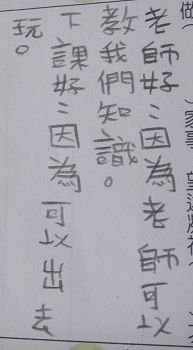 老師好:因為老師可以
教我們知識。
下課好:因為可以出去
玩。